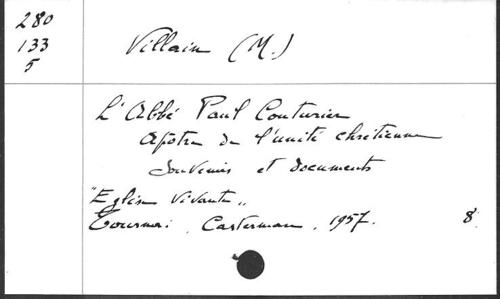 280
133
5
Villain (M.)
L'Abbé Paul Couturier
Apôtre de l'unité chrétienne
Souvenirs et documents
"Eglise Vivante"
Tournai, Casterman, 1957. 8.